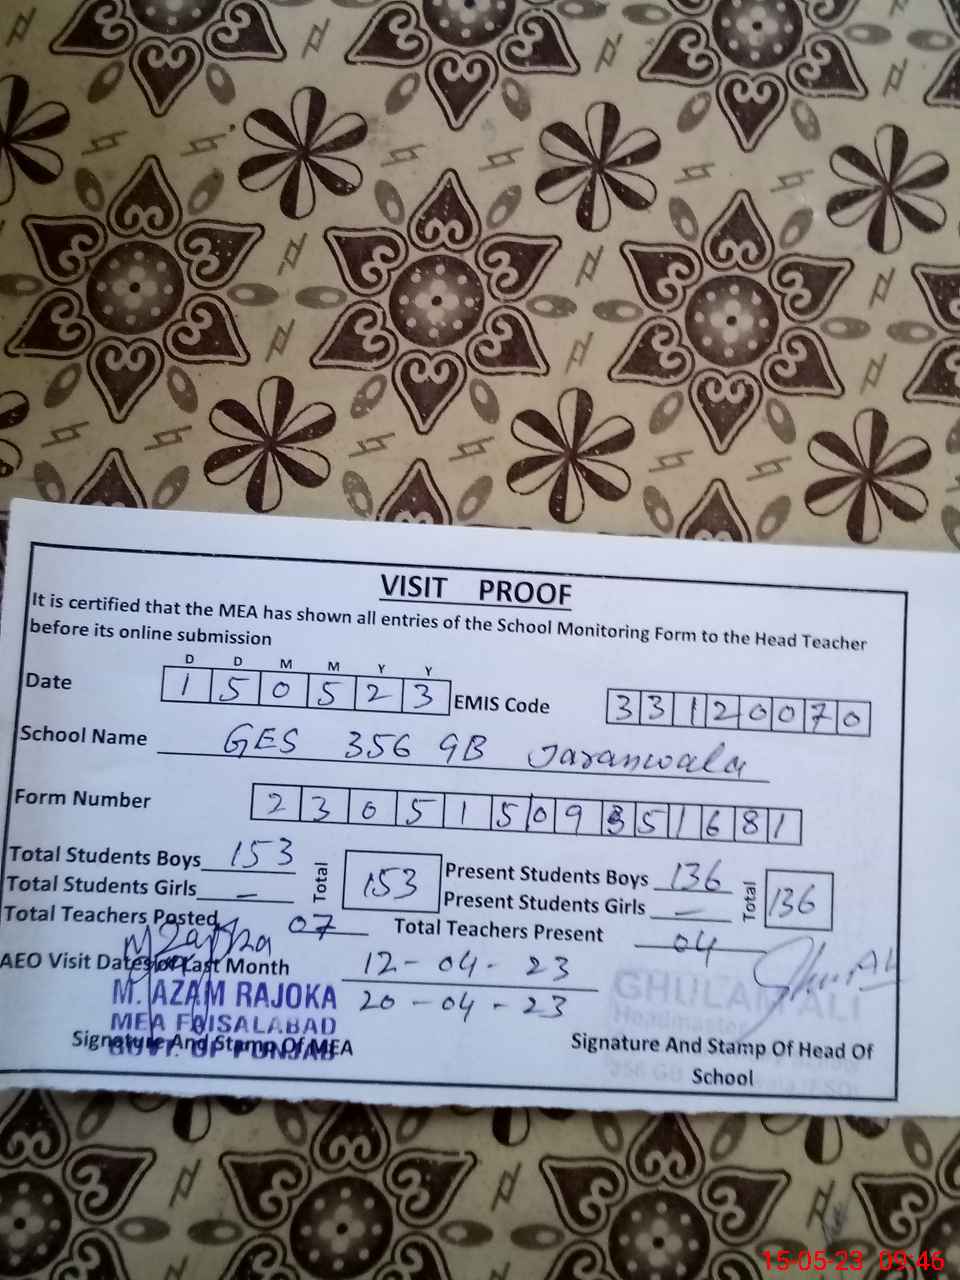 VISIT PROOF
It is certified that the MEA has shown all entries of the School Monitoring Form to the Head Teacher
before its online submission
D D M M Y Y
Date 1 5 0 5 2 3 EMIS Code 3 3 1 2 0 0 7 0
School Name GES 356 GB Jaranwala
Form Number 2 3 0 5 1 5 0 9 3 5 1 6 8 1
Total Students Boys 153 Total 153 Present Students Boys 136 Total 136
Total Students Girls - Present Students Girls -
Total Teachers Posted 07 Total Teachers Present 04
AEO Visit Dates of Last Month 12-04-23
20-04-23
M. AZAM RAJOKA
MEA FAISALABAD
GOVT. OF PUNJAB
Signature And Stamp Of MEA
GHULAM ALI
Headmaster
Signature And Stamp Of Head Of
School
15-05-23 09:46